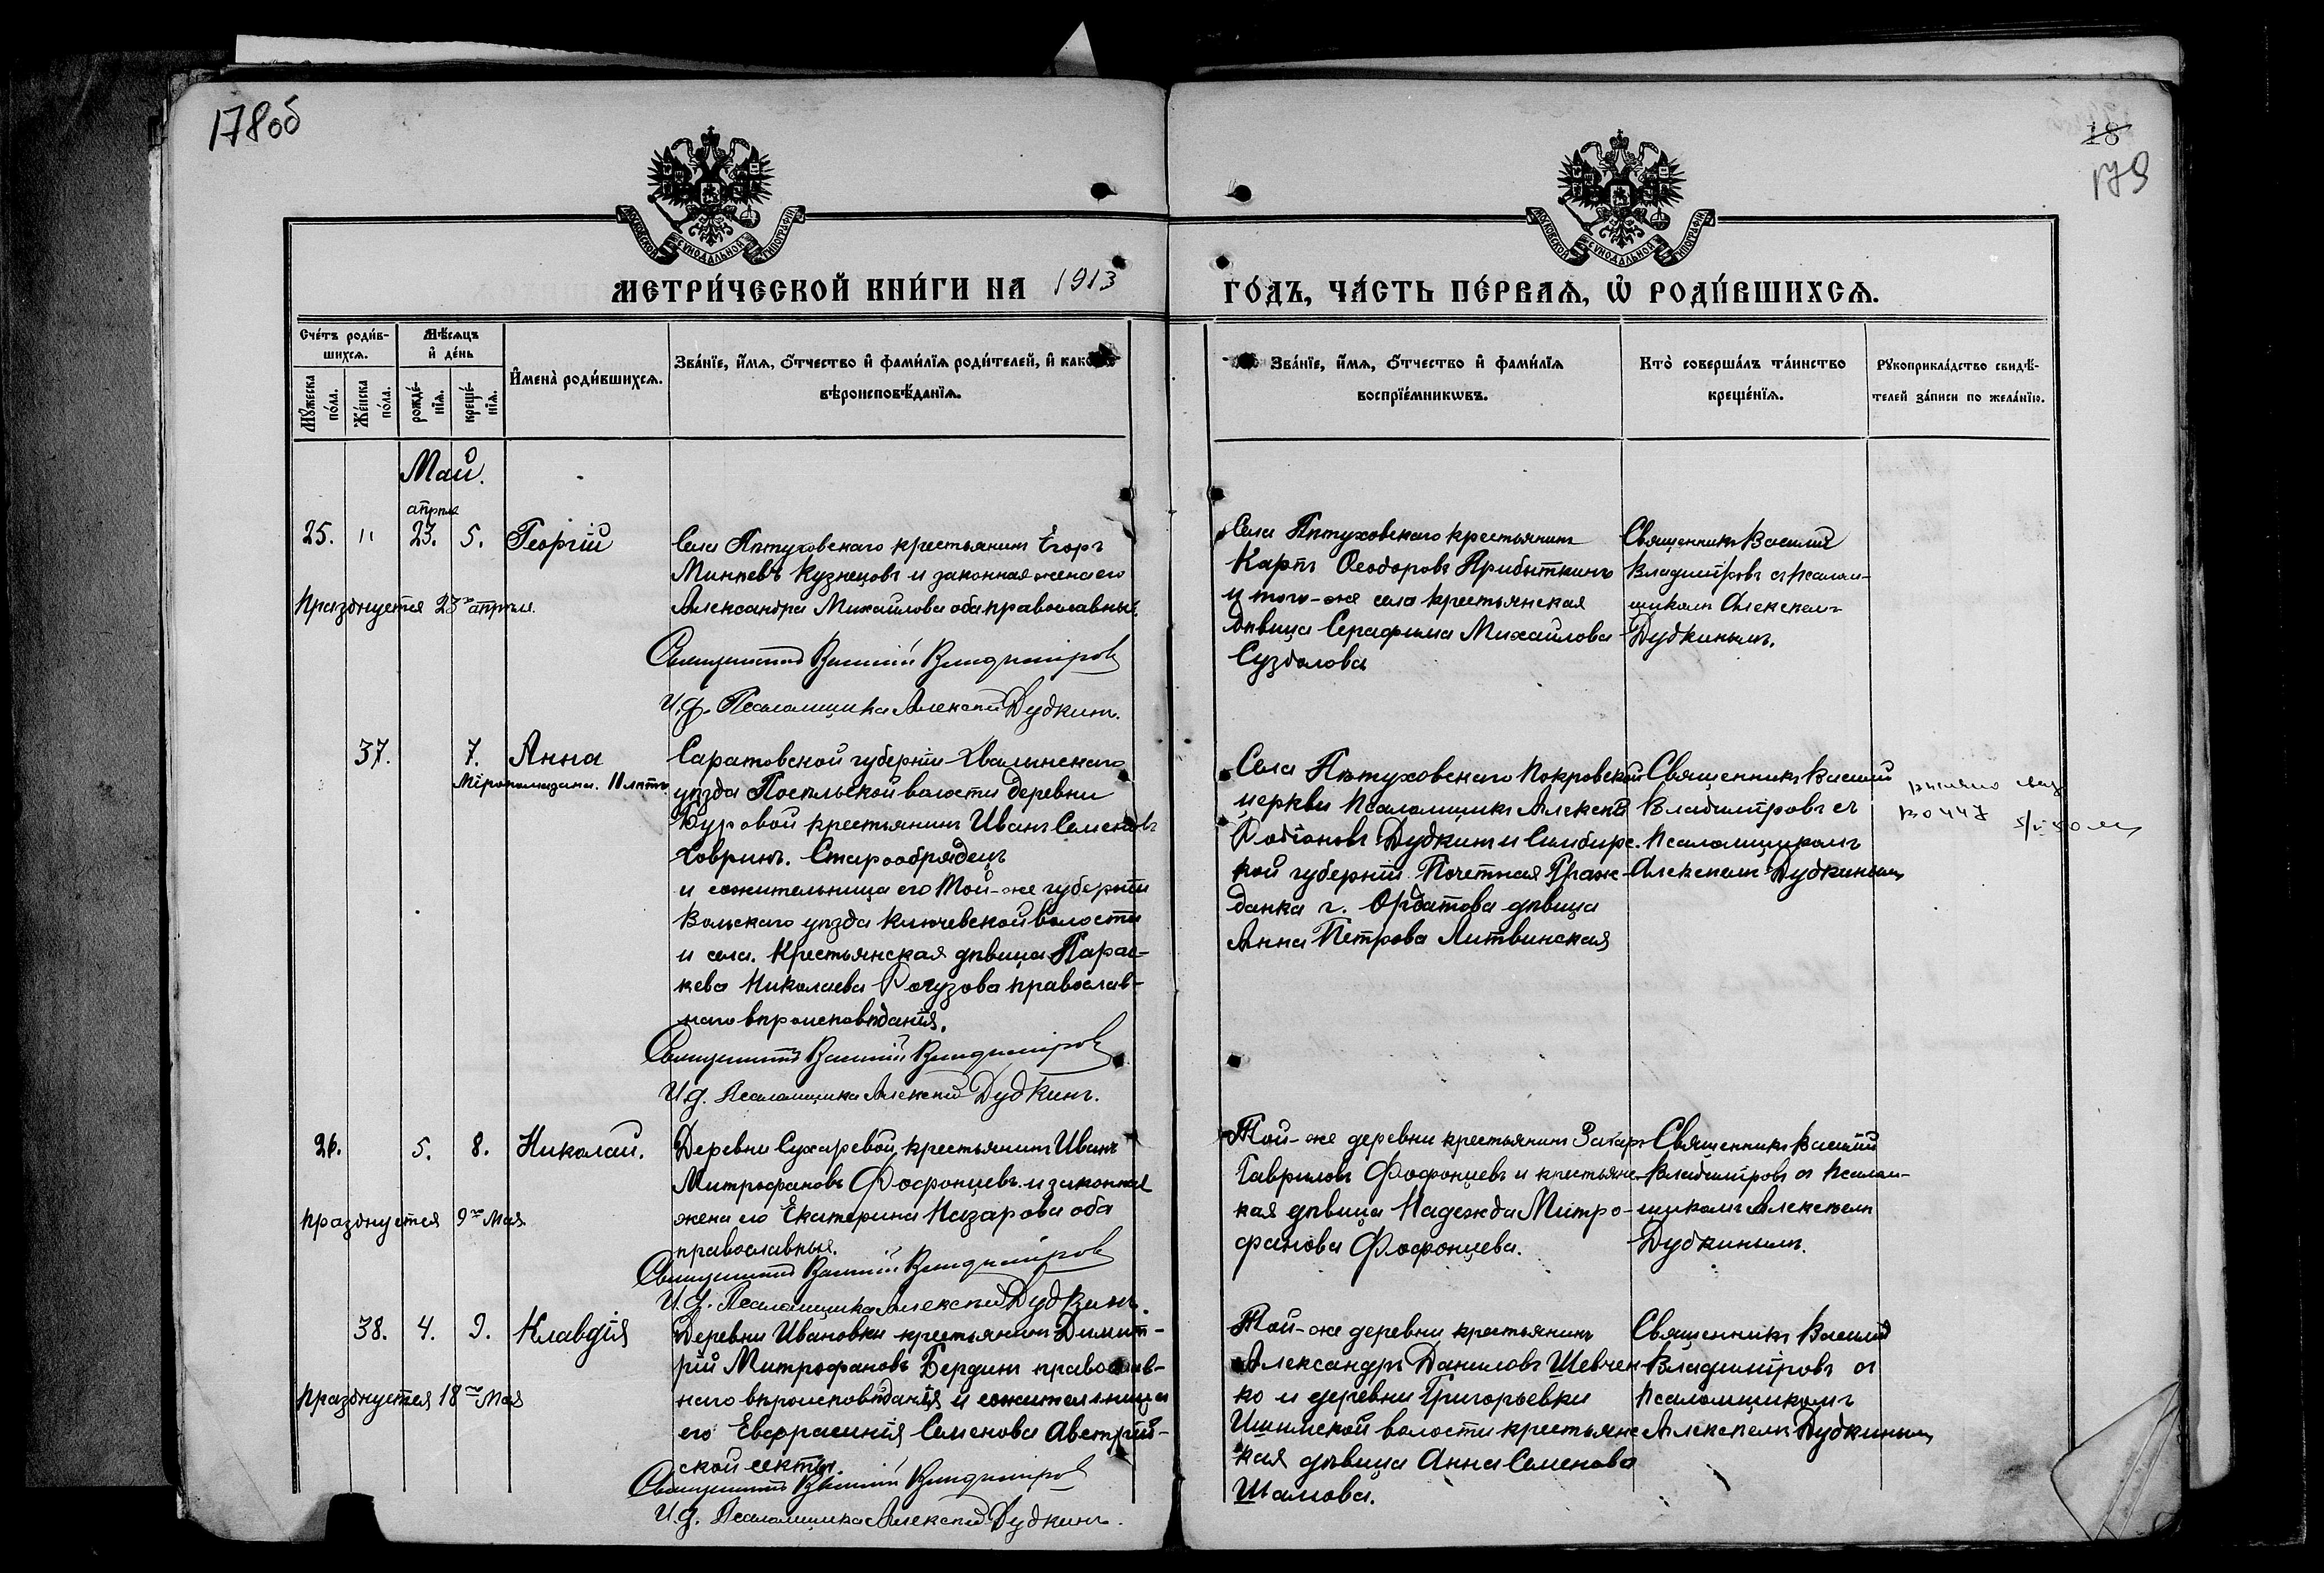 178об
18
179
МОСКОВСКОЙ СѴНОДАЛЬНОЙ ТИПОГРАФІИ
МОСКОВСКОЙ СѴНОДАЛЬНОЙ ТИПОГРАФІИ
МЕТРИ́ЧЕСКОЙ КНИ́ГИ НА 1913
ГО́ДЪ, ЧА́СТЬ ПЕ́РВАѦ, Ѡ҆ РОДИ́ВШИХСѦ.
Сче́тъ роди́в-
шихсѧ.
Мꙋжеска
по́ла.
Же́нска
по́ла.
Мѣ́сѧцъ
и҆ де́нь
рожде́-
нїѧ.
креще́-
нїѧ.
И҆мена̀ роди́вшихсѧ.
Зва́нїе, и҆́мѧ, ѻ҆́тчество и҆ фами́лїѧ роди́телей, и҆ како́гѡ
вѣроисповѣ́данїѧ.
Зва́нїе, и҆́мѧ, ѻ҆́тчество и҆ фами́лїѧ
воспрїе́мникѡвъ.
Кто̀ соверша́лъ та́инство
креще́нїѧ.
Рꙋкоприкла́дство свидѣ́-
телей за́писи по жела́нїю.
Май.
апрѣля
25. " 23. 5. Георгій
Праздуется 23го апрѣля.
Села Пѣтуховскаго крестьянинъ Егоръ
Минѣевъ Кузнецовъ и законная жена его
Александра Михайлова оба православные.
Священникъ Василій Владиміровъ
И.д. Псаломщика Алексѣй Дудкинъ.
Села Пѣтуховскаго крестьянинъ
Карпъ Ѳеодоровъ Прибыткинъ
и того-же села крестьянская
дѣвица Серафима Михайлова
Суздалова
Священникъ Василій
Владиміровъ съ псалом-
щикомъ Алексѣемъ
Дудкинымъ.
37. 7. Анна
Мѵропомазана. 11 лѣтъ
Саратовской губерніи Хвалынскаго
уѣзда Посельской волости деревни
Буровой крестьянинъ Иванъ Семеновъ
Ховринъ. Старообрядецъ
и сожительница его Той-же губерніи
Вольскаго уѣзда Ключевской волости
и села. Крестьянская дѣвица Парас-
кева Николаева Рогузова православ-
наго вѣроисповѣданія.
Священникъ Василій Владиміровъ
И.д. Псаломщика Алексѣй Дудкинъ.
Села Пѣтуховскаго Покровской
церкви Псаломщикъ Алексѣй
Родіоновъ Дудкинъ и Симбирс-
кой губерніи Почетная Граж-
данка г. Ардатова дѣвица
Анна Петрова Литвинская
Священникъ Василій
Владиміровъ съ
Псаломщикомъ
Алексѣемъ Дудкинымъ
26. 5. 8. Николай.
Празднуется 9го Мая
Деревни Сухаревой, крестьянинъ Иванъ
Митрофановъ Фофонцевъ и законная
жена его Екатерина Назарова оба
православные.
Священникъ Василій Владиміровъ
И.д. Псаломщика Алексѣй Дудкинъ.
Той-же деревни крестьянинъ Захаръ
Гавриловъ Фофонцевъ и крестьянс-
кая дѣвица Надежда Митро-
фанова Фофонцева.
Священникъ Василій
Владиміровъ съ Псалом-
щикомъ Алексѣемъ
Дудкинымъ.
38. 4. 9. Клавдія
Празднуется 18го Мая
Деревни Ивановки крестьянинъ Димит-
рій Митрофановъ Бердинъ православ-
наго вѣроисповѣданія и сожительница
его Евфрасинія Семенова Австрій-
ской секты.
Священникъ Василій Владиміровъ
И.д. Псаломщика Алексѣй Дудкинъ.
Той-же деревни крестьянинъ
Александръ Даниловъ Шевчен-
ко и деревни Григорьевки
Ишимской волости крестьянс-
кая дѣвица Анна Семенова
Шамова.
Священникъ Василій
Владиміровъ съ
псаломщикомъ
Алексѣемъ Дудкинымъ